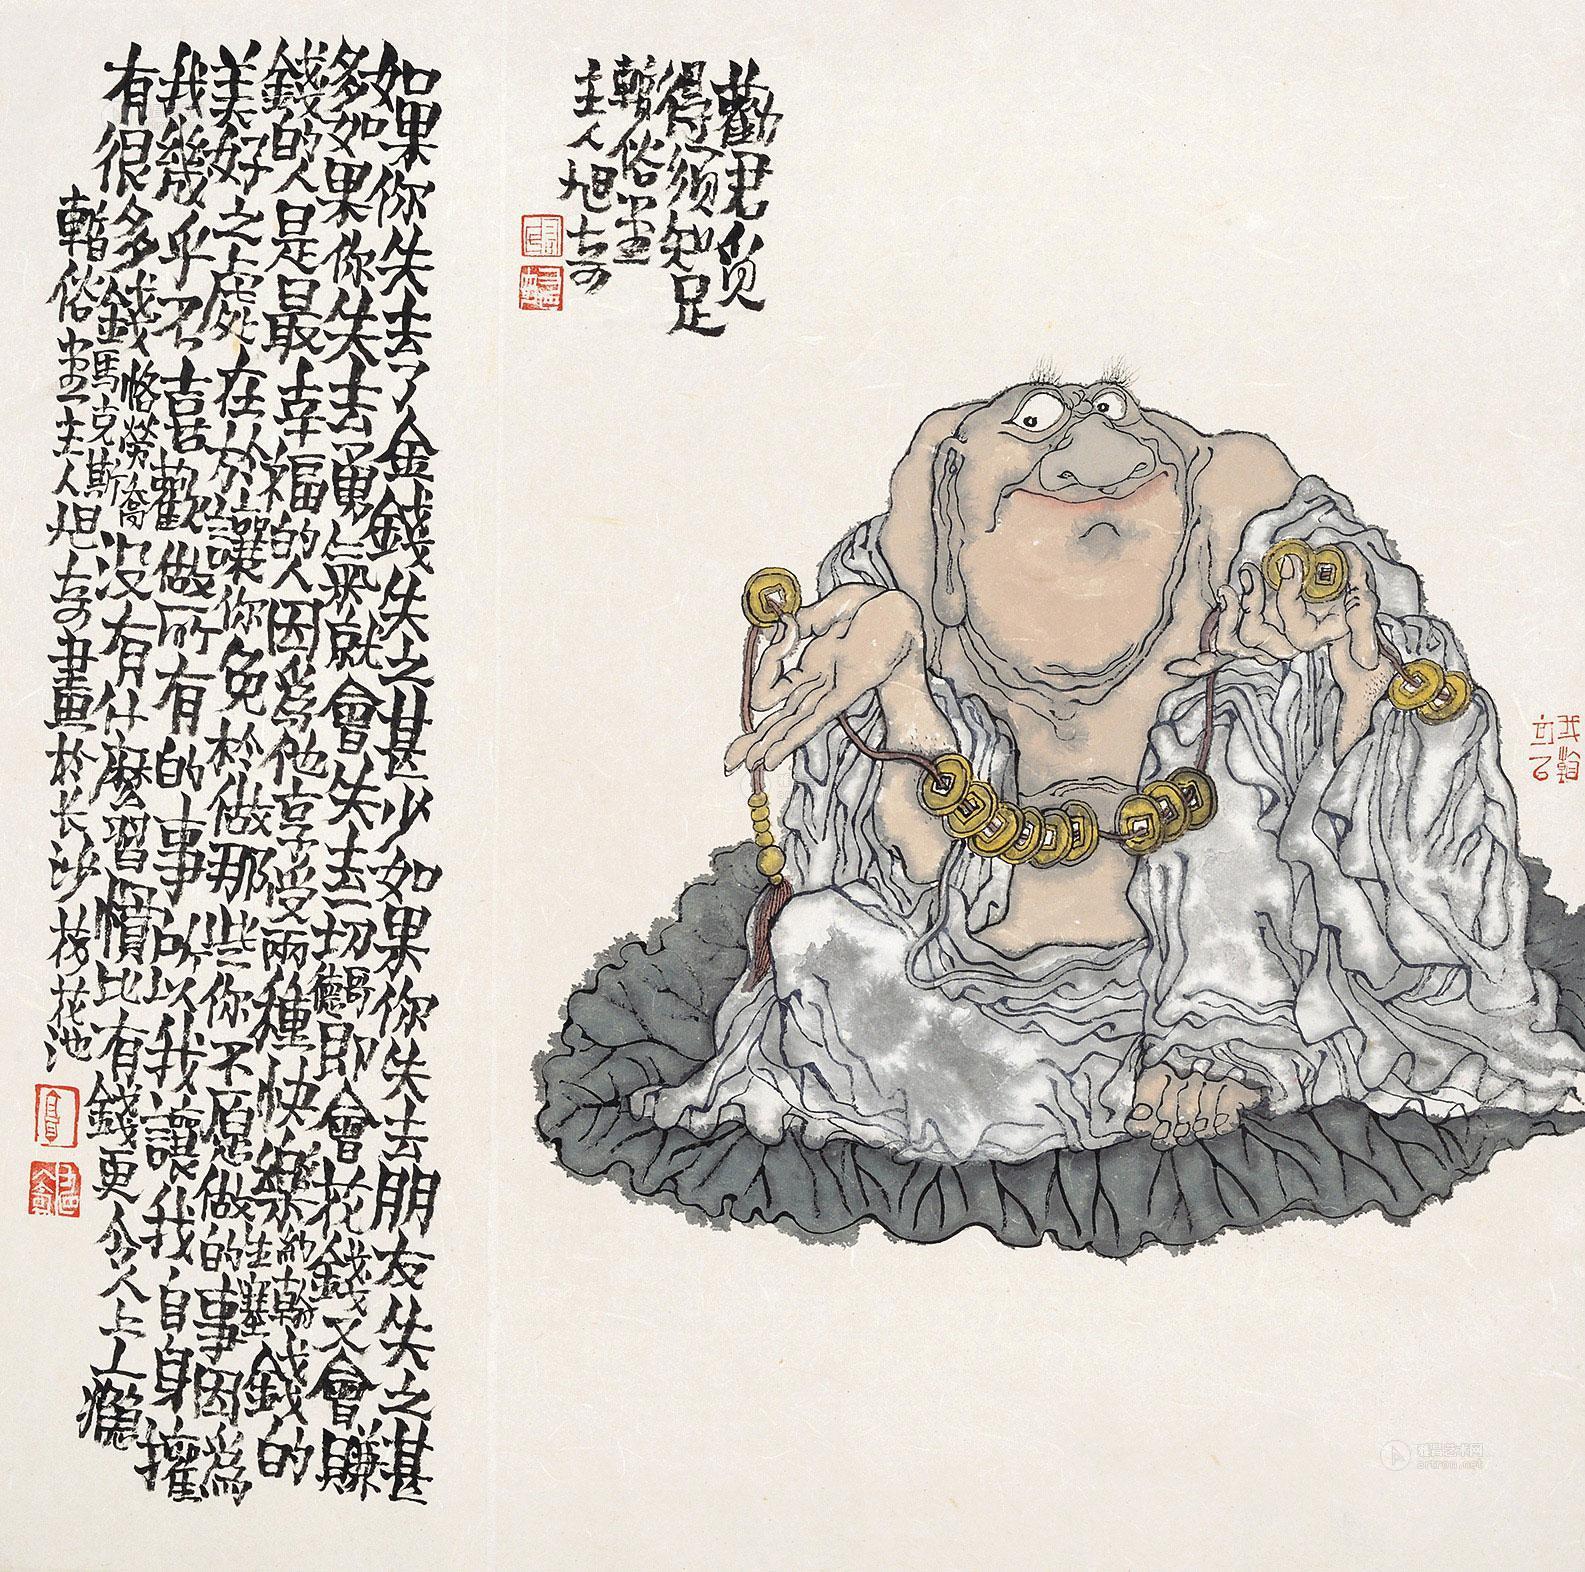 勸君貪
得須知足
暫俗堂
主人旭奇
如果你失去了金錢失之甚少如果你失去朋友失之甚
多如果你失去勇氣就會失去一切歌德即會花錢又會賺
錢的人是最幸福的人因爲他享受兩種快樂約翰生塞錢的
美好之處在於讓你免於做那些你不愿做的事因爲
我幾乎不喜歡做所有的事所以我讓我自身擁
有很多錢格勞喬馬克斯沒有什麼習慣比有錢更令人上上癮
暫俗堂主人旭奇畫於长沙花池
雅昌艺术网
artron.net